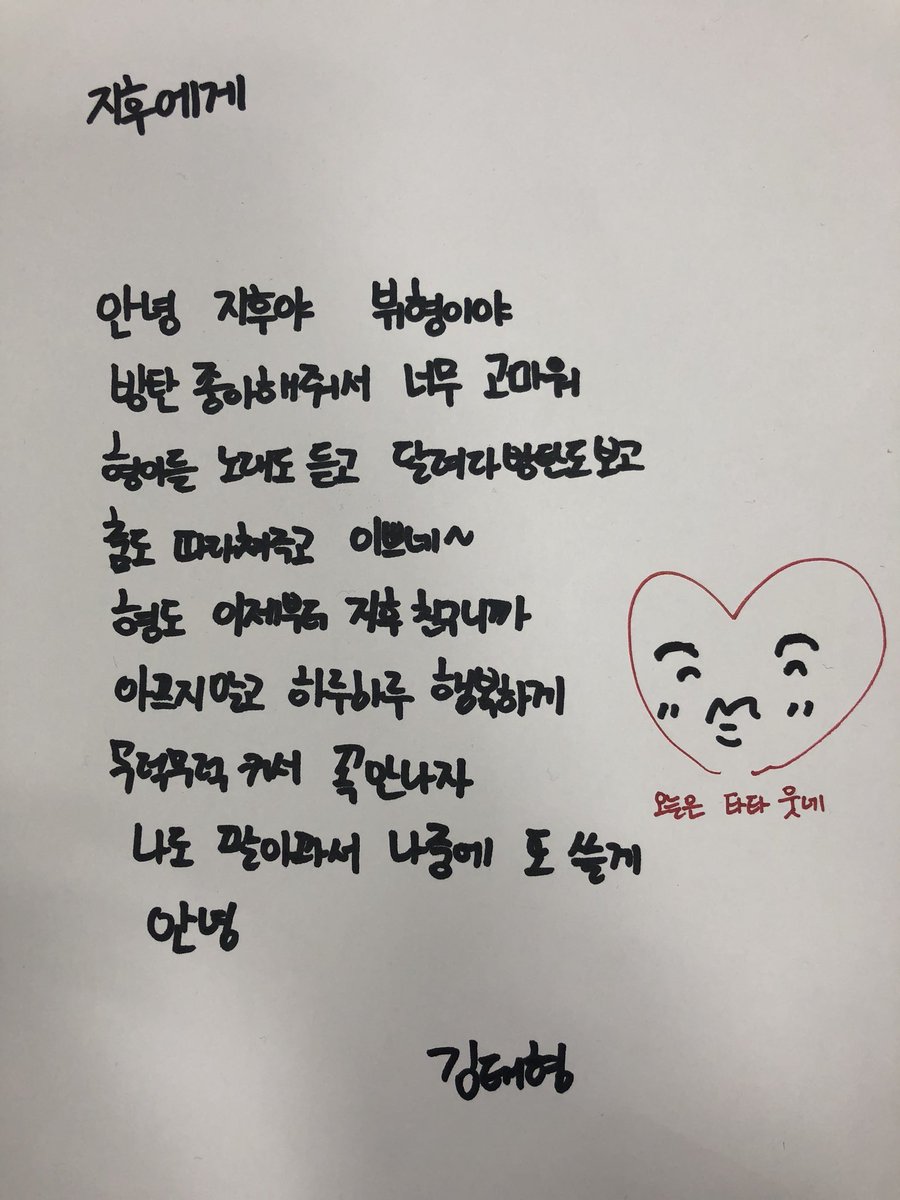 지후에게
안녕 지후야 뷔형이야
방탄 좋아해줘서 너무 고마워
형아들 노래도 듣고 달려라방탄도보고
춤도 따라춰주고 이쁘네~
형도 이제부터 지후 친구니까
아프지말고 하루하루 행복하게
무럭무럭 커서 꼭만나자
나도 말이과서 나중에 또 쓸게
안녕
오늘은 타타 웃네
김태형